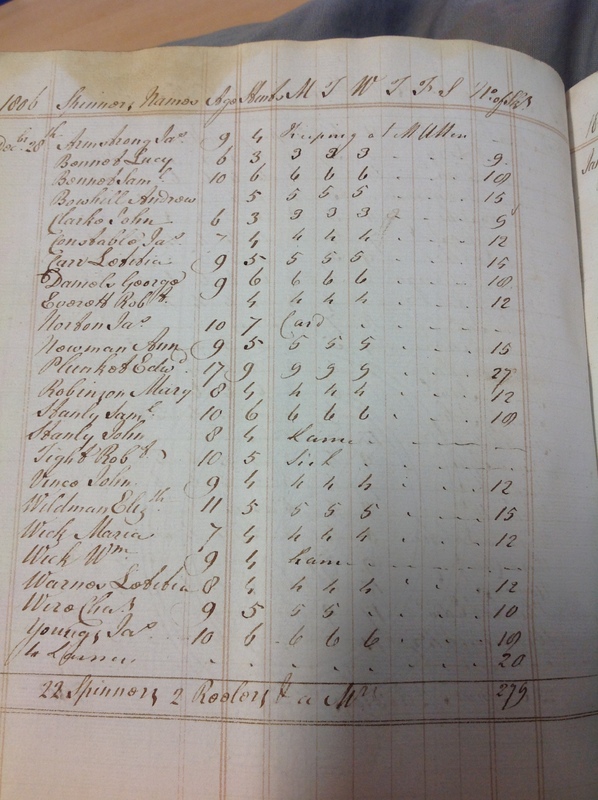 1806 Spinners Names Age Stint M T W T F S No. of Sks
Decbr. 28th. Armstrong Jas. 9 4 Keeping at
Bennet Lucy 6 3 3 3 3 . . . 9
Bennet Saml. 10 6 6 6 6 . . . 18
Bowhill Andrew 5 5 5 5 . . . 15
Clarke John 6 3 3 3 3 . . . 9
Constable Jas. 7 4 4 4 4 . . . 12
Carr Letitia 9 5 5 5 5 . . . 15
Daniels George 9 6 6 6 6 . . . 18
Everett Robt. 4 4 4 4 . . . 12
Norton Jas. 10 7 Card . . . .
Newman Ann 9 5 5 5 5 . . . 15
Plunket Edwd. 17 9 9 9 9 . . . 27
Robinson Mary 8 4 4 4 4 . . . 12
Stanly Saml. 10 6 6 6 6 . . . 18
Stanly John 8 4 Lame . . . .
Tight Robt. 10 5 Sick . . . .
Vince John 9 4 4 4 4 . . . 12
Wildman Elizth. 11 5 5 5 5 . . . 15
Wick Maria 7 4 4 4 4 . . . 12
Wick Wm. 9 4 Lame . . . .
Warnes Letitia 8 4 4 4 4 . . . 12
Wire Chas. 9 5 5 5 . . . . 10
Youngs Jas. 10 6 6 6 6 . . . 18
. . . . . . . . 20
22 Spinners 2 Reelers & a Mrs. 279